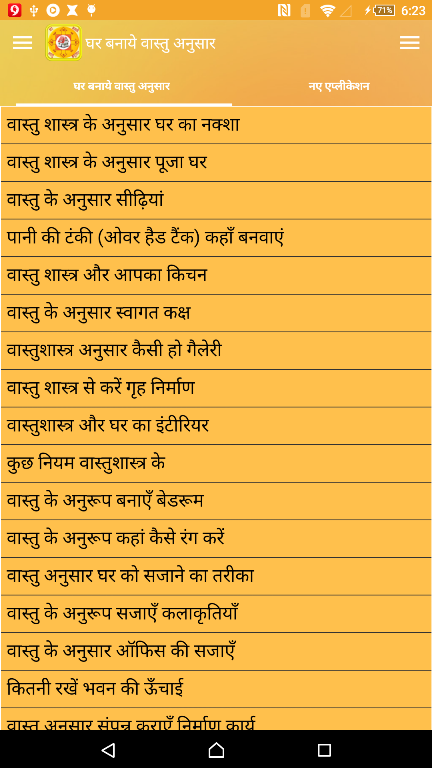 71% 6:23
घर बनाये वास्तु अनुसार
घर बनाये वास्तु अनुसार नए एप्लीकेशन
वास्तु शास्त्र के अनुसार घर का नक्शा
वास्तु शास्त्र के अनुसार पूजा घर
वास्तु के अनुसार सीढ़ियां
पानी की टंकी (ओवर हैड टैंक) कहाँ बनवाएं
वास्तु शास्त्र और आपका किचन
वास्तु के अनुसार स्वागत कक्ष
वास्तुशास्त्र अनुसार कैसी हो गैलेरी
वास्तु शास्त्र से करें गृह निर्माण
वास्तुशास्त्र और घर का इंटीरियर
कुछ नियम वास्तुशास्त्र के
वास्तु के अनुरूप बनाएँ बेडरूम
वास्तु के अनुरूप कहां कैसे रंग करें
वास्तु अनुसार घर को सजाने का तरीका
वास्तु के अनुरूप सजाएँ कलाकृतियाँ
वास्तु के अनुसार ऑफिस की सजाएँ
कितनी रखें भवन की ऊँचाई
वास्तु अनुसार संपन्न कराएँ निर्माण कार्य